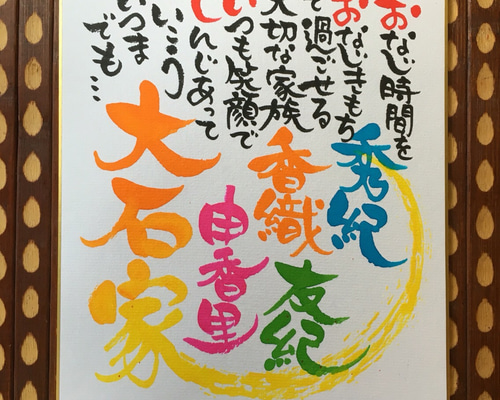 おなじ時間を
おなじきもち
で過ごせる
大切な家族
いつも笑顔で
しんじあって
いこう
いつま
でも…
秀紀
香織
友紀
由香里
大石家